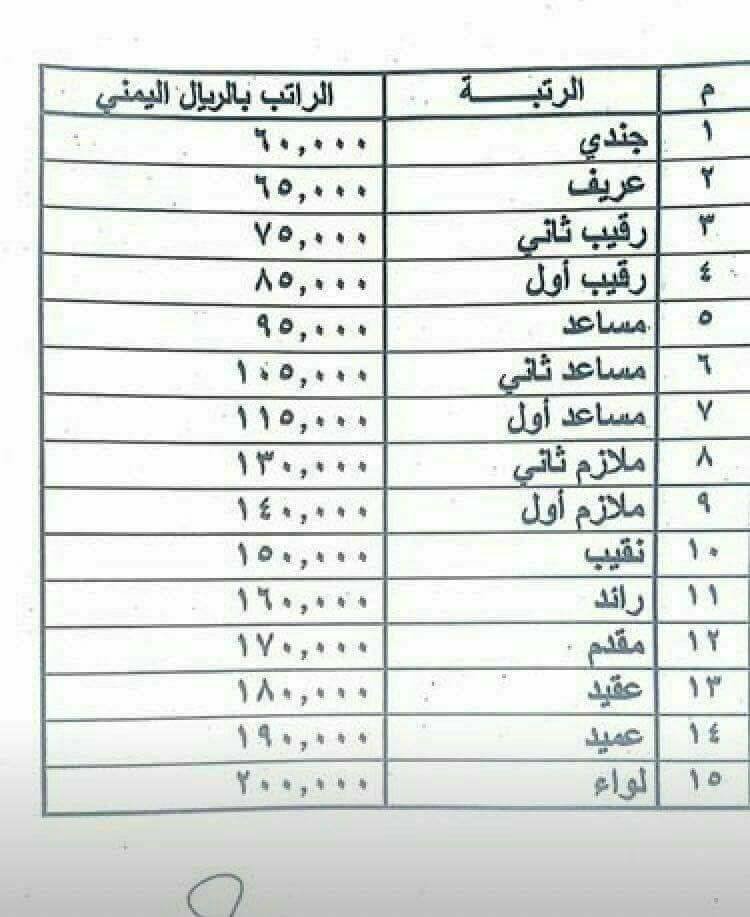 م الرتبـــــة الراتب بالريال اليمني
١ جندي ٦٠,٠٠٠
٢ عريف ٦٥,٠٠٠
٣ رقيب ثاني ٧٥,٠٠٠
٤ رقيب أول ٨٥,٠٠٠
٥ مساعد ٩٥,٠٠٠
٦ مساعد ثاني ١٠٥,٠٠٠
٧ مساعد أول ١١٥,٠٠٠
٨ ملازم ثاني ١٣٠,٠٠٠
٩ ملازم أول ١٤٠,٠٠٠
١٠ نقيب ١٥٠,٠٠٠
١١ رائد ١٦٠,٠٠٠
١٢ مقدم ١٧٠,٠٠٠
١٣ عقيد ١٨٠,٠٠٠
١٤ عميد ١٩٠,٠٠٠
١٥ لواء ٢٠٠,٠٠٠